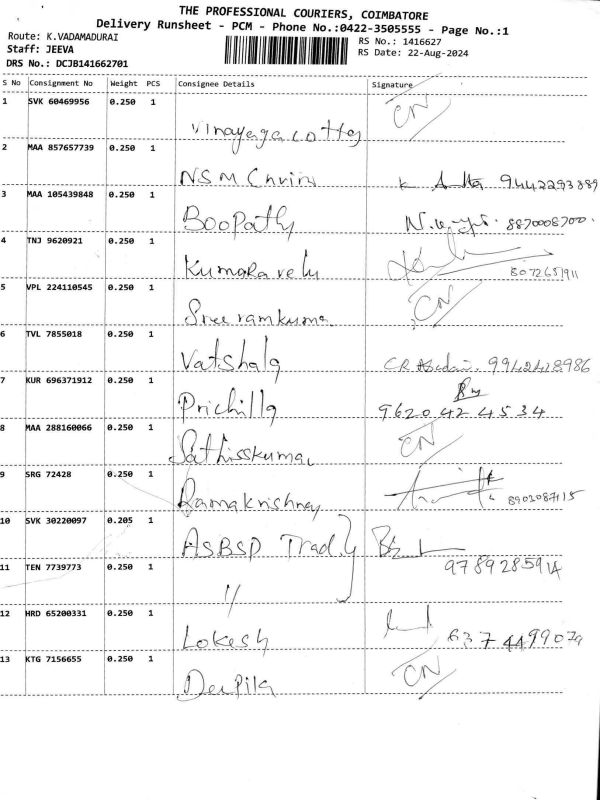 THE PROFESSIONAL COURIERS, COIMBATORE
Delivery Runsheet - PCM - Phone No.:0422-3505555 - Page No.:1
Route: K.VADAMADURAI
RS No.: 1416627
Staff: JEEVA
RS Date: 22-Aug-2024
DRS No.: DCJB141662701
S No Consignment No Weight PCS Consignee Details Signature
1 SVK 60469956 0.250 1 CN
Vinayaga cottog
2 MAA 857657739 0.250 1
NSM
3 MAA 105439848 0.250 1
Boopathy 8870008700
4 TNJ 9620921 0.250 1
Kumaravelu 8072651911
5 VPL 224110545 0.250 1 CN
Sree ramkuma
6 TVL 7855018 0.250 1
Vatshala 9942428986
7 KUR 696371912 0.250 1
Prichilla 9620424534
8 MAA 288160066 0.250 1 CN
Sathisskumar
9 SRG 72428 0.250 1
Ramakrishnan 8903087115
10 SVK 30220097 0.205 1
ASBSP Trad.
11 TEN 7739773 0.250 1 9789285914
"
12 HRD 65200331 0.250 1
Lokesh 6374499079
13 KTG 7156655 0.250 1 CN
Deepika